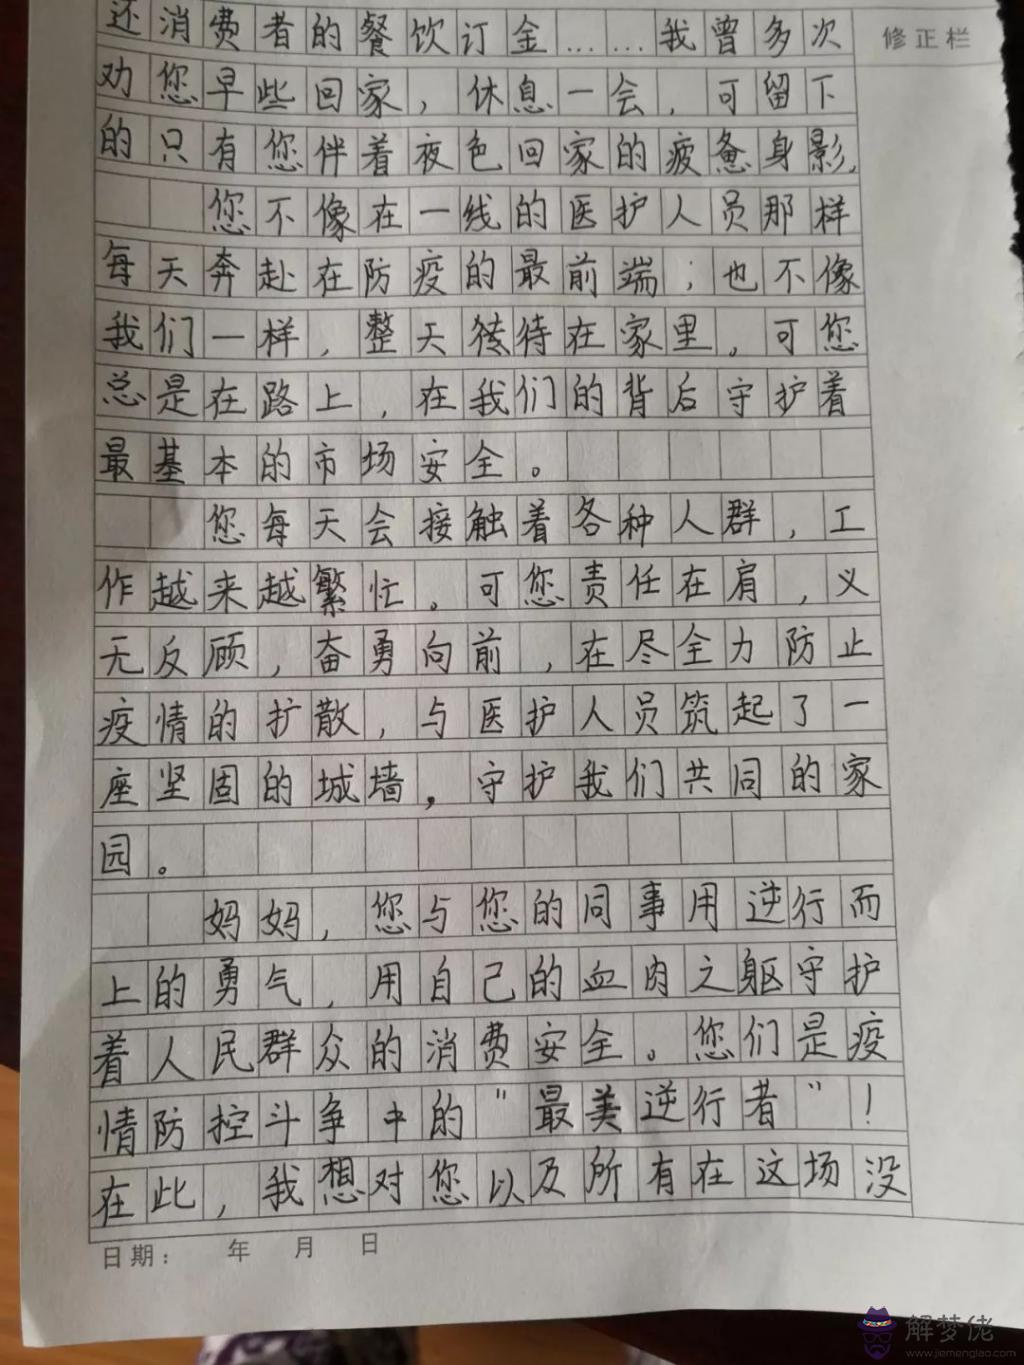 还消费者的餐饮订金……我曾多次
修正栏
劝您早些回家，休息一会，可留下
的只有您伴着夜色回家的疲惫身影。
您不像在一线的医护人员那样
每天奔赴在防疫的最前端；也不像
我们一样，整天待在家里。可您
总是在路上，在我们的背后守护着
最基本的市场安全。
您每天会接触着各种人群，工
作越来越繁忙。可您责任在肩，义
无反顾，奋勇向前，在尽全力防止
疫情的扩散，与医护人员筑起了一
座坚固的城墙，守护我们共同的家
园。
妈妈，您与您的同事用逆行而
上的勇气，用自己的血肉之躯守护
着人民群众的消费安全。您们是疫
情防控斗争中的"最美逆行者"！
在此，我想对您以及所有在这场没
日期： 年 月 日
解梦佬
www.jiemenglao.com